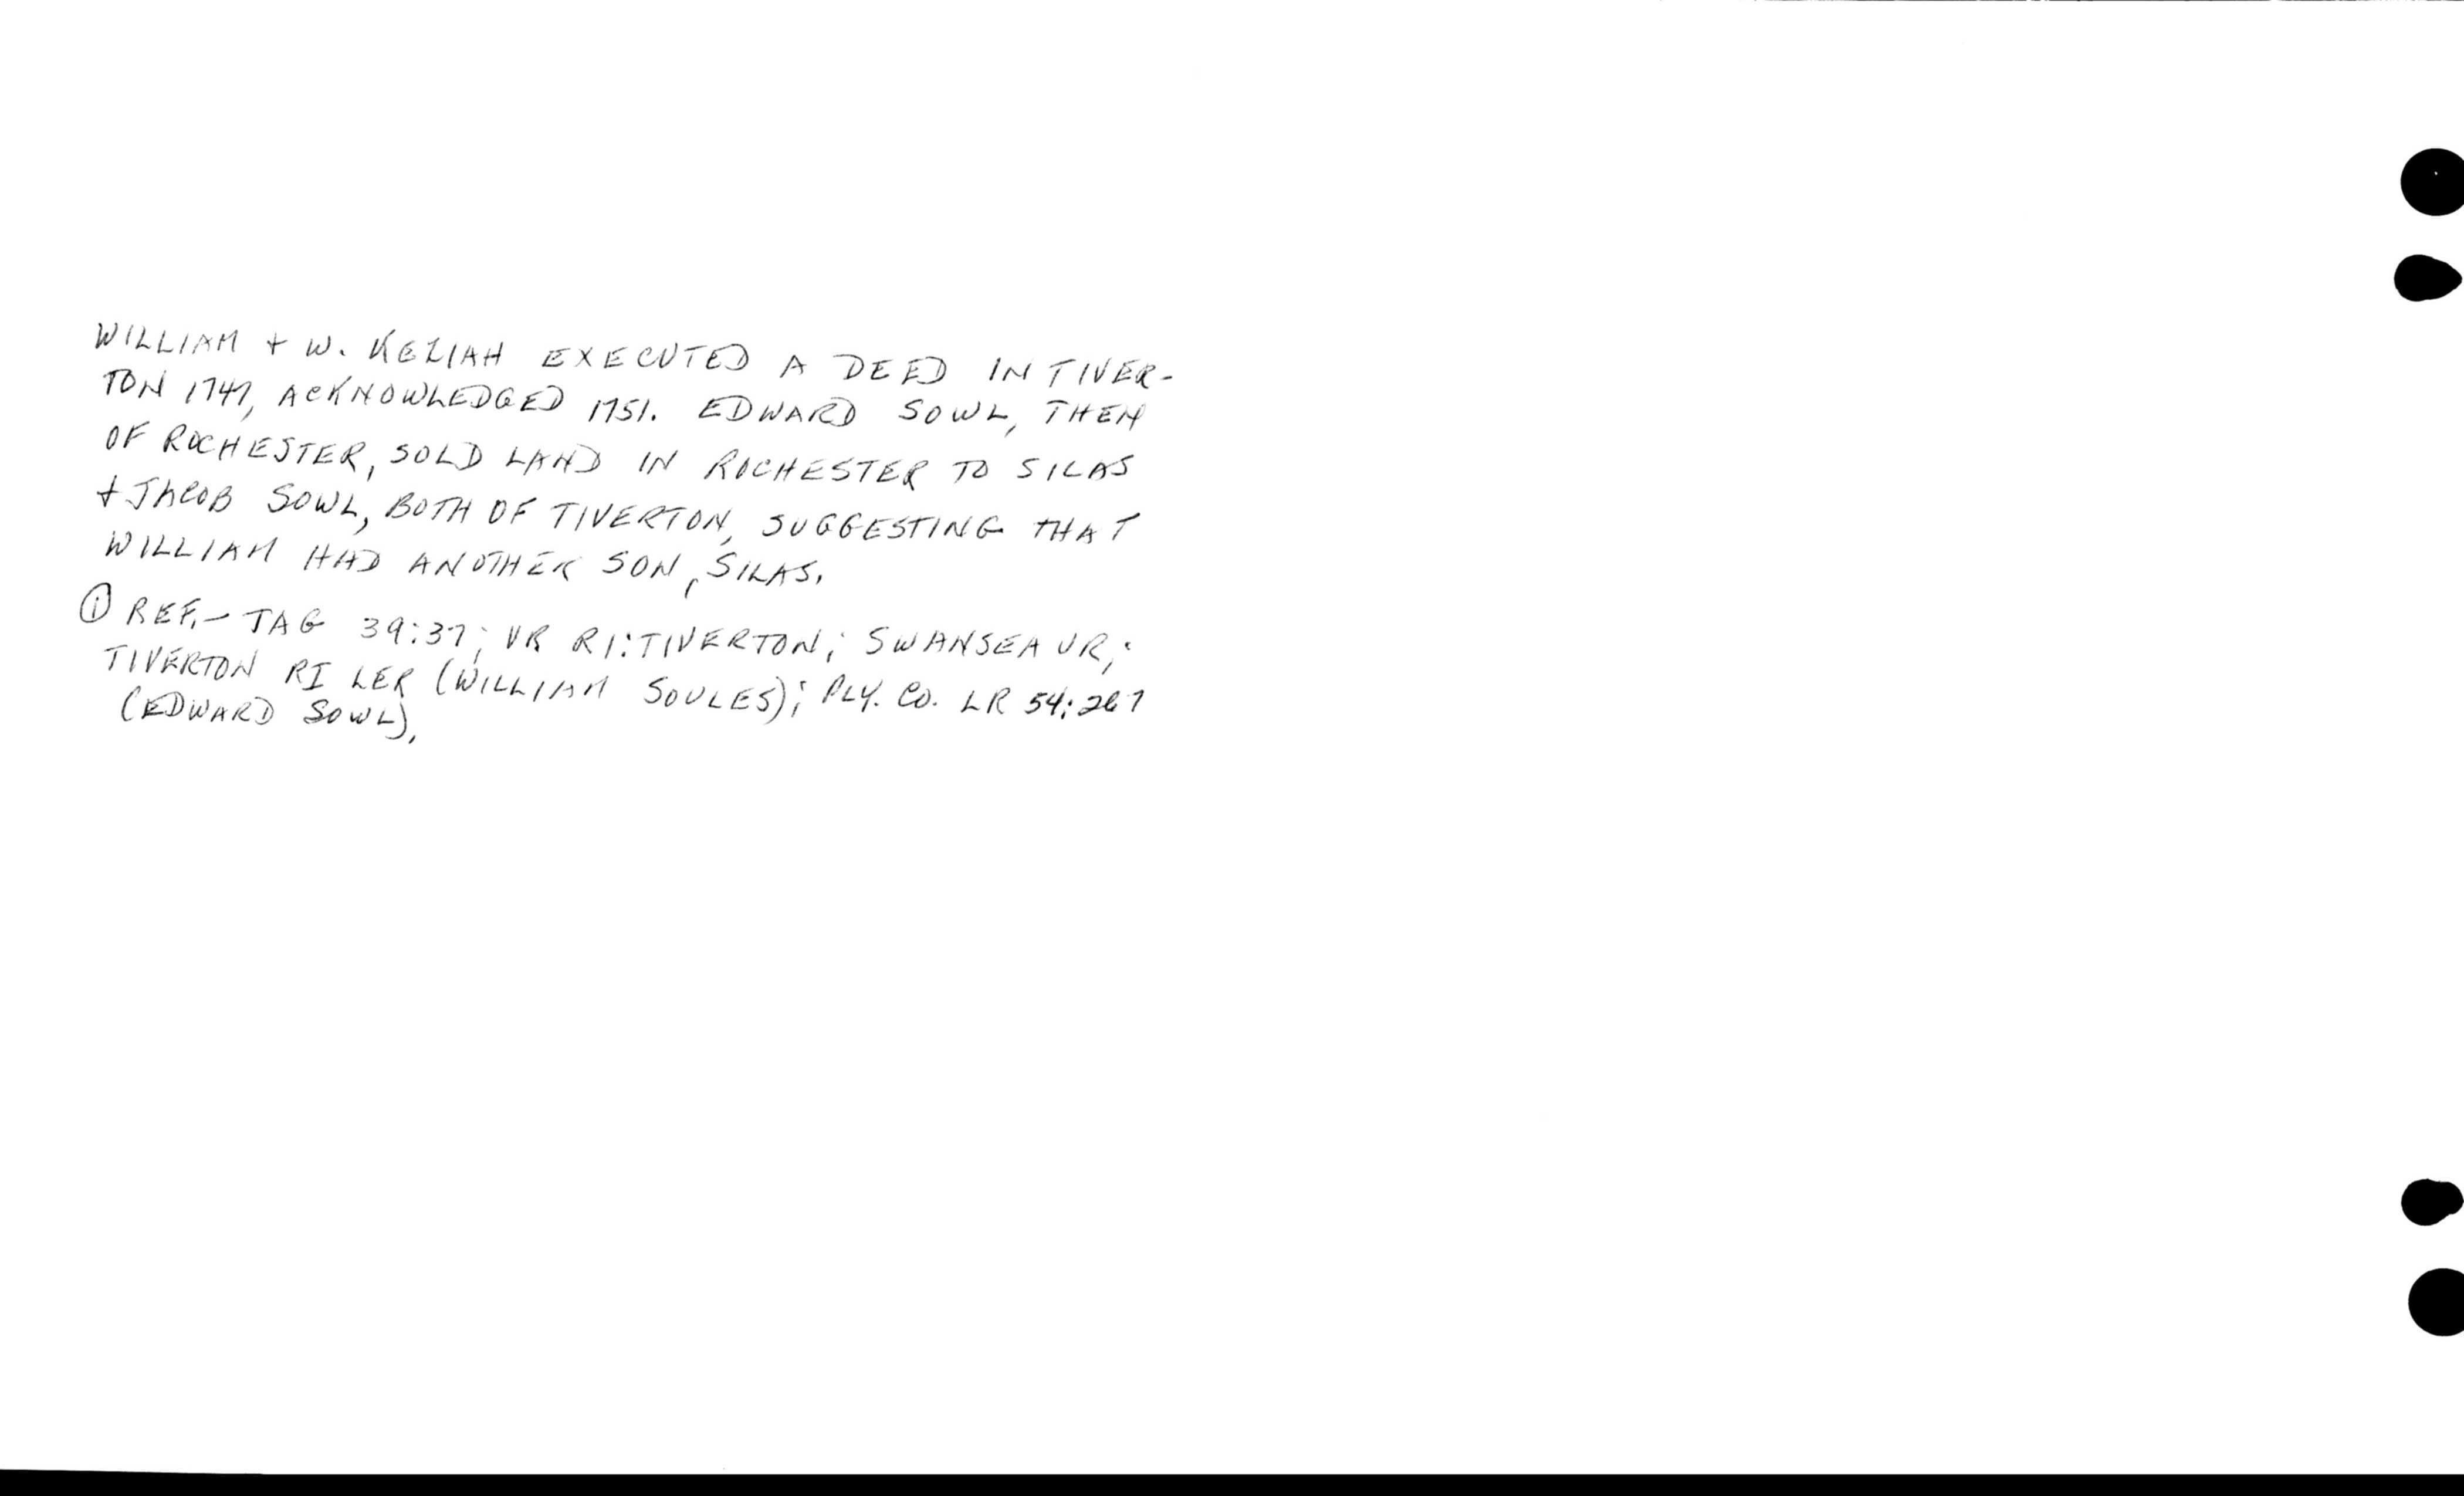 WILLIAM + W. KEZIAH EXECUTED A DEED IN TIVER-
TON 1747, ACKNOWLEDGED 1751. EDWARD SOWL, THEN
OF ROCHESTER, SOLD LAND IN ROCHESTER TO SILAS
+ JACOB SOWL, BOTH OF TIVERTON, SUGGESTING THAT
WILLIAM HAD ANOTHER SON, SILAS.
① REF.- TAG 39:37; VR RI:TIVERTON; SWANSEA VR;
TIVERTON RI LER (WILLIAM SOULES); PLY. CO. LR 54:267
(EDWARD SOWL).